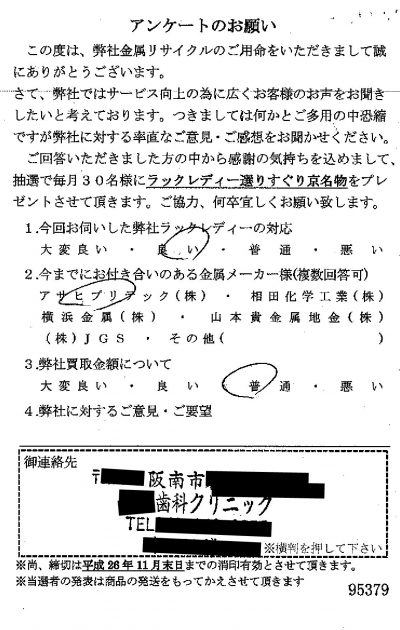 アンケートのお願い
この度は、弊社金属リサイクルのご用命をいただきまして誠
にありがとうございます。
さて、弊社ではサービス向上の為に広くお客様のお声をお聞き
したいと考えております。つきましては何かとご多用の中恐縮
ですが弊社に対する率直なご意見・ご感想をお聞かせください。
ご回答いただきました方の中から感謝の気持ちを込めまして、
抽選で毎月30名様にラックレディー選りすぐり京名物をプレ
ゼントさせて頂きます。ご協力、何卒宜しくお願い致します。
1.今回お伺いした弊社ラックレディーの対応
大変良い・良い・普通・悪い
2.今までにお付き合いのある金属メーカー様(複数回答可)
アサヒプリテック(株)・相田化学工業(株)
横浜金属(株)・山本貴金属地金(株)
(株)JGS・その他( )
3.弊社買取金額について
大変良い・良い・普通・悪い
4.弊社に対するご意見・ご要望
御連絡先
〒 阪南市
歯科クリニック
TEL
※横判を押して下さい
※尚、締切は平成26年11月末日までの消印有効とさせて頂きます。
※当選者の発表は商品の発送をもってかえさせて頂きます
95379